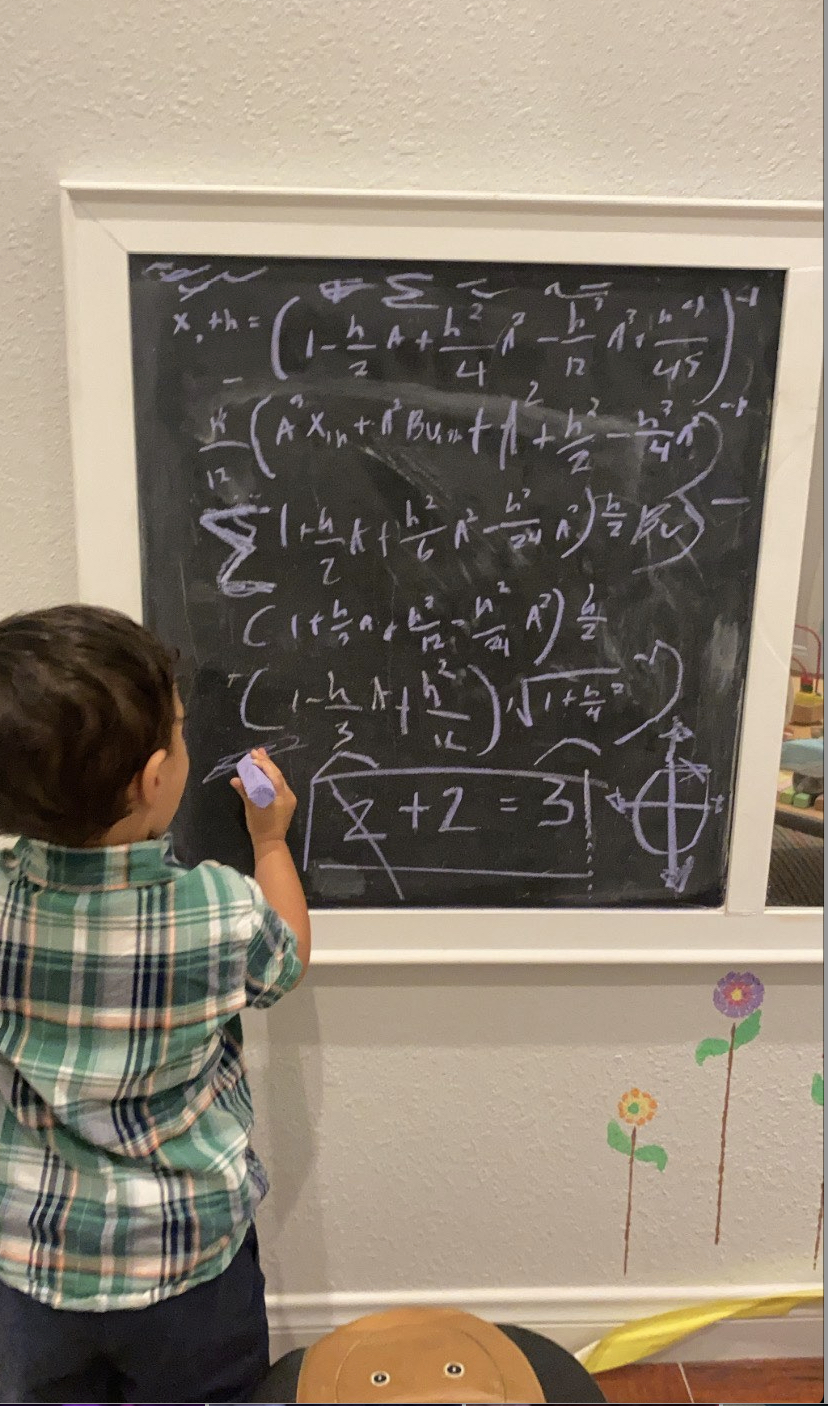 x, + h = (1 - h/2 A + h²/4 A² - h³/12 A³ + h⁴/45)⁻¹
h/12 (A³ X₁ₙ + A² Bu + A² + h²/2 - h³/4 A²)⁻¹
Σ 1 + h/2 A + h²/6 A² - h³/24 A³) h/2 Bu) -
(1 + h/2 A + h²/12 - h²/24 A²) h/2
+ (1 - h/3 A + h²/12) √(1 + h/4 ²)⁻¹)
2 + 2 = 3